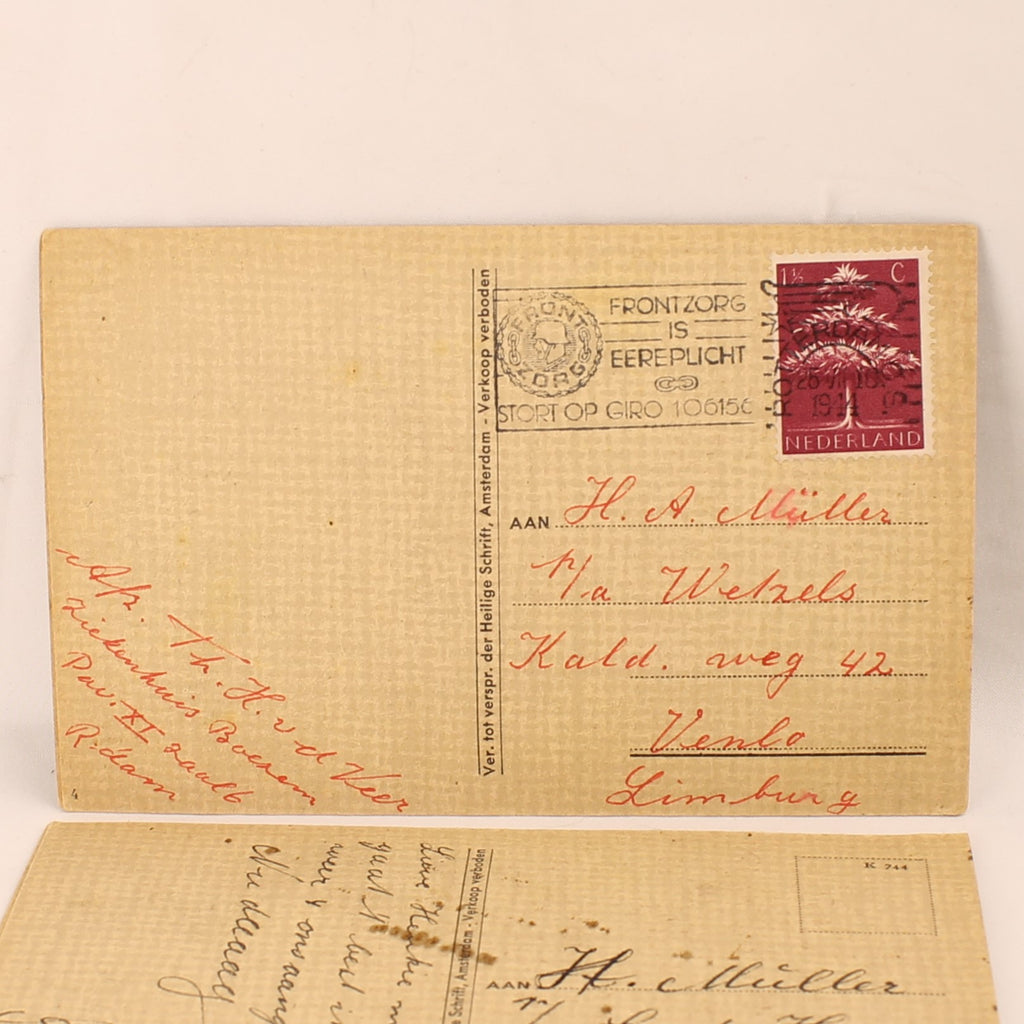 FRONT ZORG
FRONTZORG
IS
EEREPLICHT
STORT OP GIRO 106156
1½ C
ROTTERDAM
1944
NEDERLAND
Ver. tot verspr. der Heilige Schrift, Amsterdam - Verkoop verboden
AAN H. A. Müller
p/a Wetzels
Kald. weg 42
Venlo
Limburg
Afz. Th. H. v d Veer
Ziekenhuis Boezem
Pav. XI zaal 6
R.dam
4
Schrift, Amsterdam - Verkoop verboden
K 744
Lieve Henkie
gaat 't best
weer
AAN H. Müller
p/